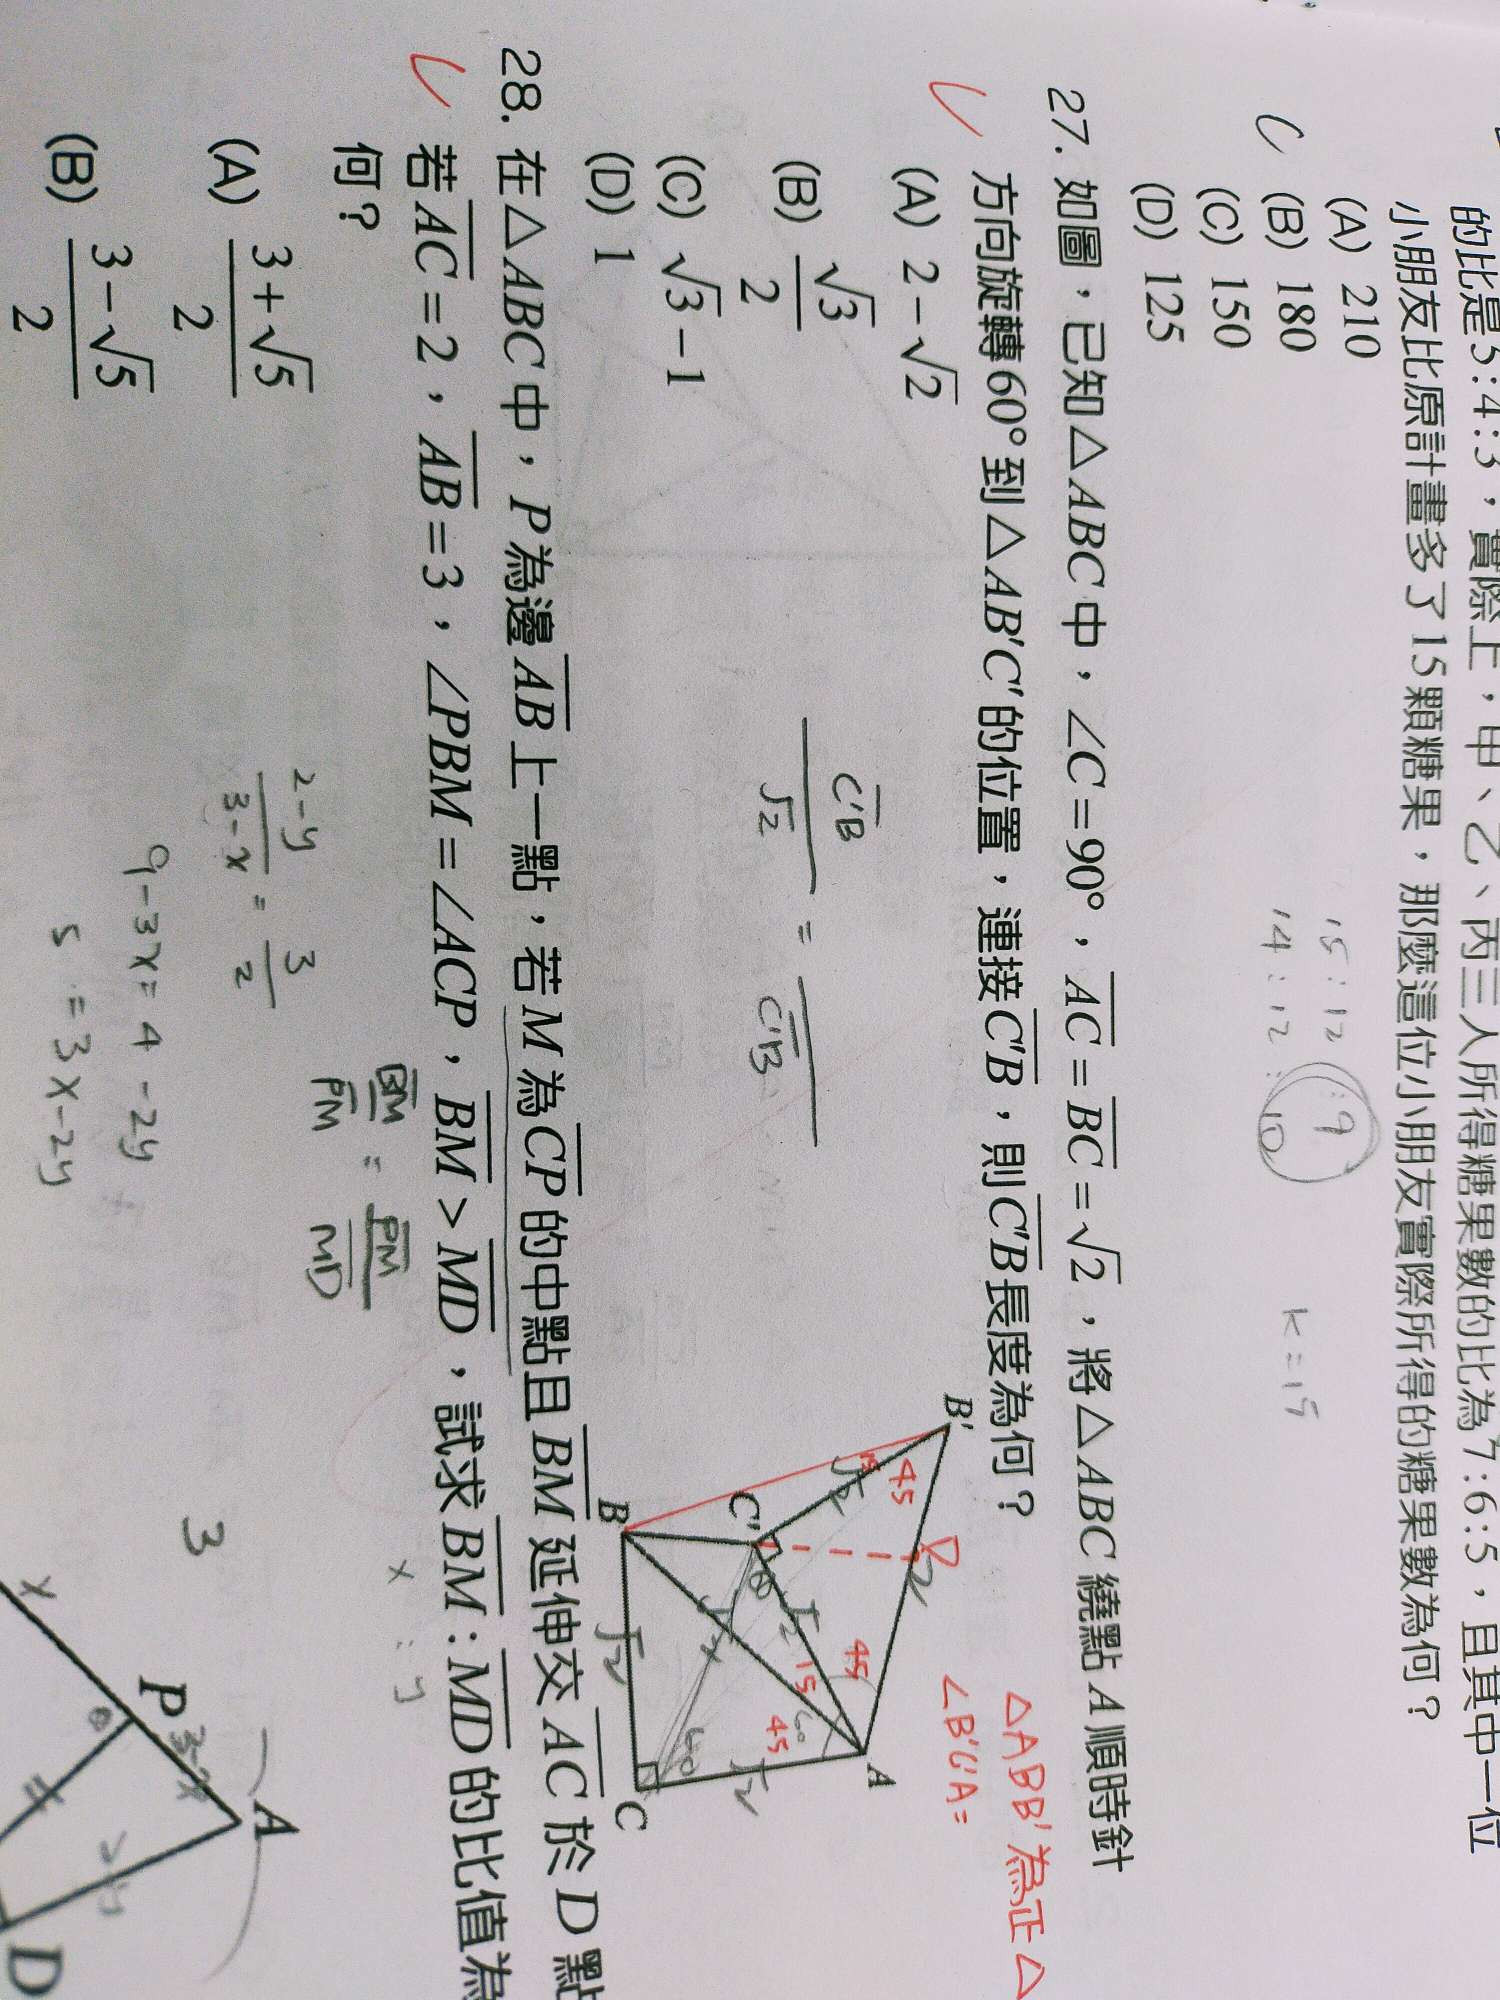 的比是5:4:3，實際上，甲、乙、丙三人所得糖果數的比為7:6:5，且其中一位
小朋友比原計畫多了15顆糖果，那麼這位小朋友實際所得的糖果數為何？
(A) 210
C (B) 180
(C) 150
(D) 125
15:12:9
14:12:10
k=15
27. 如圖，已知△ABC中，∠C=90°，AC=BC=√2，將△ABC繞點A順時針
方向旋轉60°到△AB'C'的位置，連接C'B，則C'B長度為何？
(A) 2-√2
(B) √3/2
(C) √3-1
(D) 1
C'B/√2 = /C'B
△ABB'為正△
∠B'C'A=
B'
D
45
15
√2
2
C'
θ
√2
45
15
60
45
A
B
√2
60
√2
C
28. 在△ABC中，P為邊AB上一點，若M為CP的中點且BM延伸交AC於D點
若AC=2，AB=3，∠PBM=∠ACP，BM>MD，試求BM:MD的比值為
何？
(A) (3+√5)/2
(B) (3-√5)/2
BM/PM = PM/MD
x : y
(2-y)/(3-x) = 3/2
9-3x=4-2y
5=3x-2y
3
x
P
3-x
A
θ
2-y
D